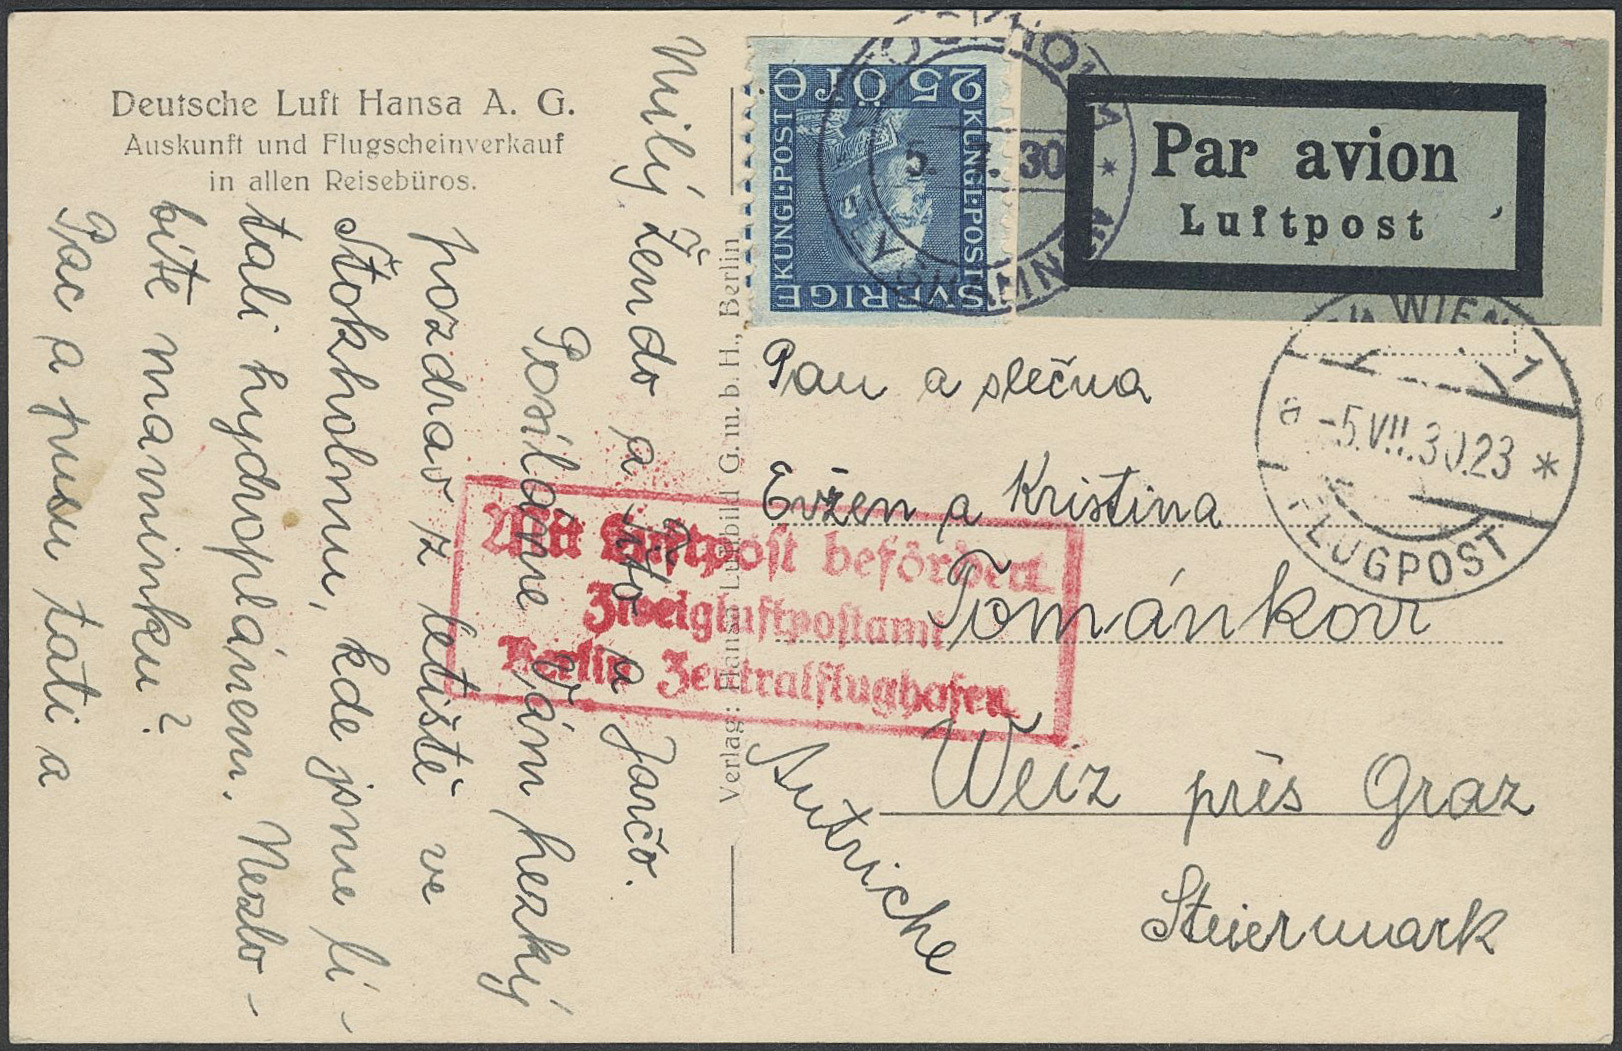 Deutsche Luft Hansa A. G.
Auskunft und Flugscheinverkauf
in allen Reisebüros.
Milý Žendo a Jarčo.
Posíláme Vám hezký
pozdrav z letiště ve
Štokholmu, kde jsme lí-
tali hydroplánem. Nezlo-
bíte maminku?
Pac a pusu tati a
Verlag: Hansa Luftbild G. m. b. H., Berlin
SVERIGE
KUNGL·POST
KUNGL·POST
25 ÖRE
STOCKHOLM
5. 30
Par avion
Luftpost
WIEN 1
a -5.VII.30.23 *
FLUGPOST
Mit Luftpost befördert
Zweigluftpostamt
Berlin Zentralflughafen
Pan a slečna
Evžen a Kristina
Tománkovi
Weiz près Graz
Steiermark
Autriche